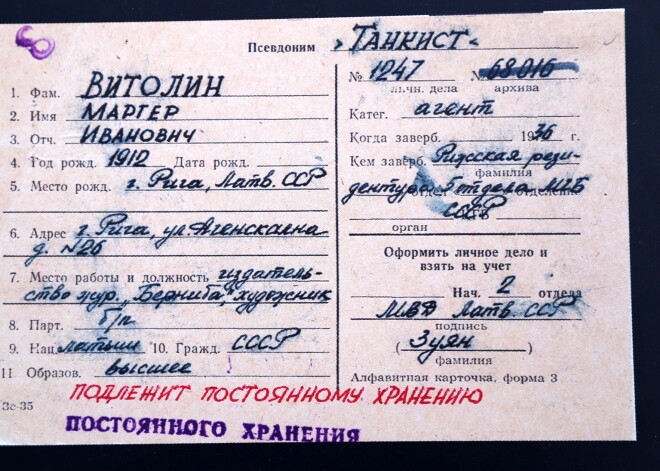 Псевдоним „ТАНКИСТ"
№ 1247 № 68016
личн. дела архива
1. Фам. ВИТОЛИН
2. Имя МАРГЕР
3. Отч. ИВАНОВИЧ
4. Год рожд. 1912 Дата рожд.
5. Место рожд. г. Рига, Латв. ССР
6. Адрес г. Рига, ул. Агенскална
д. №26
7. Место работы и должность издатель-
ство жур. „Берниба", художник
8. Парт. б/п
9. Нац. латыш 10. Гражд. СССР
11. Образов. высшее
Катег. агент
Когда заверб. 1936 г.
Кем заверб. Рижская рези-
фамилия
дентура отдела МГБ
СССР
орган
Оформить личное дело и
взять на учет
Нач. 2 отдела
МВД Латв. ССР
подпись
( Зуян )
фамилия
Алфавитная карточка, форма 3
ПОДЛЕЖИТ ПОСТОЯННОМУ ХРАНЕНИЮ
Зс-35
ПОСТОЯННОГО ХРАНЕНИЯ